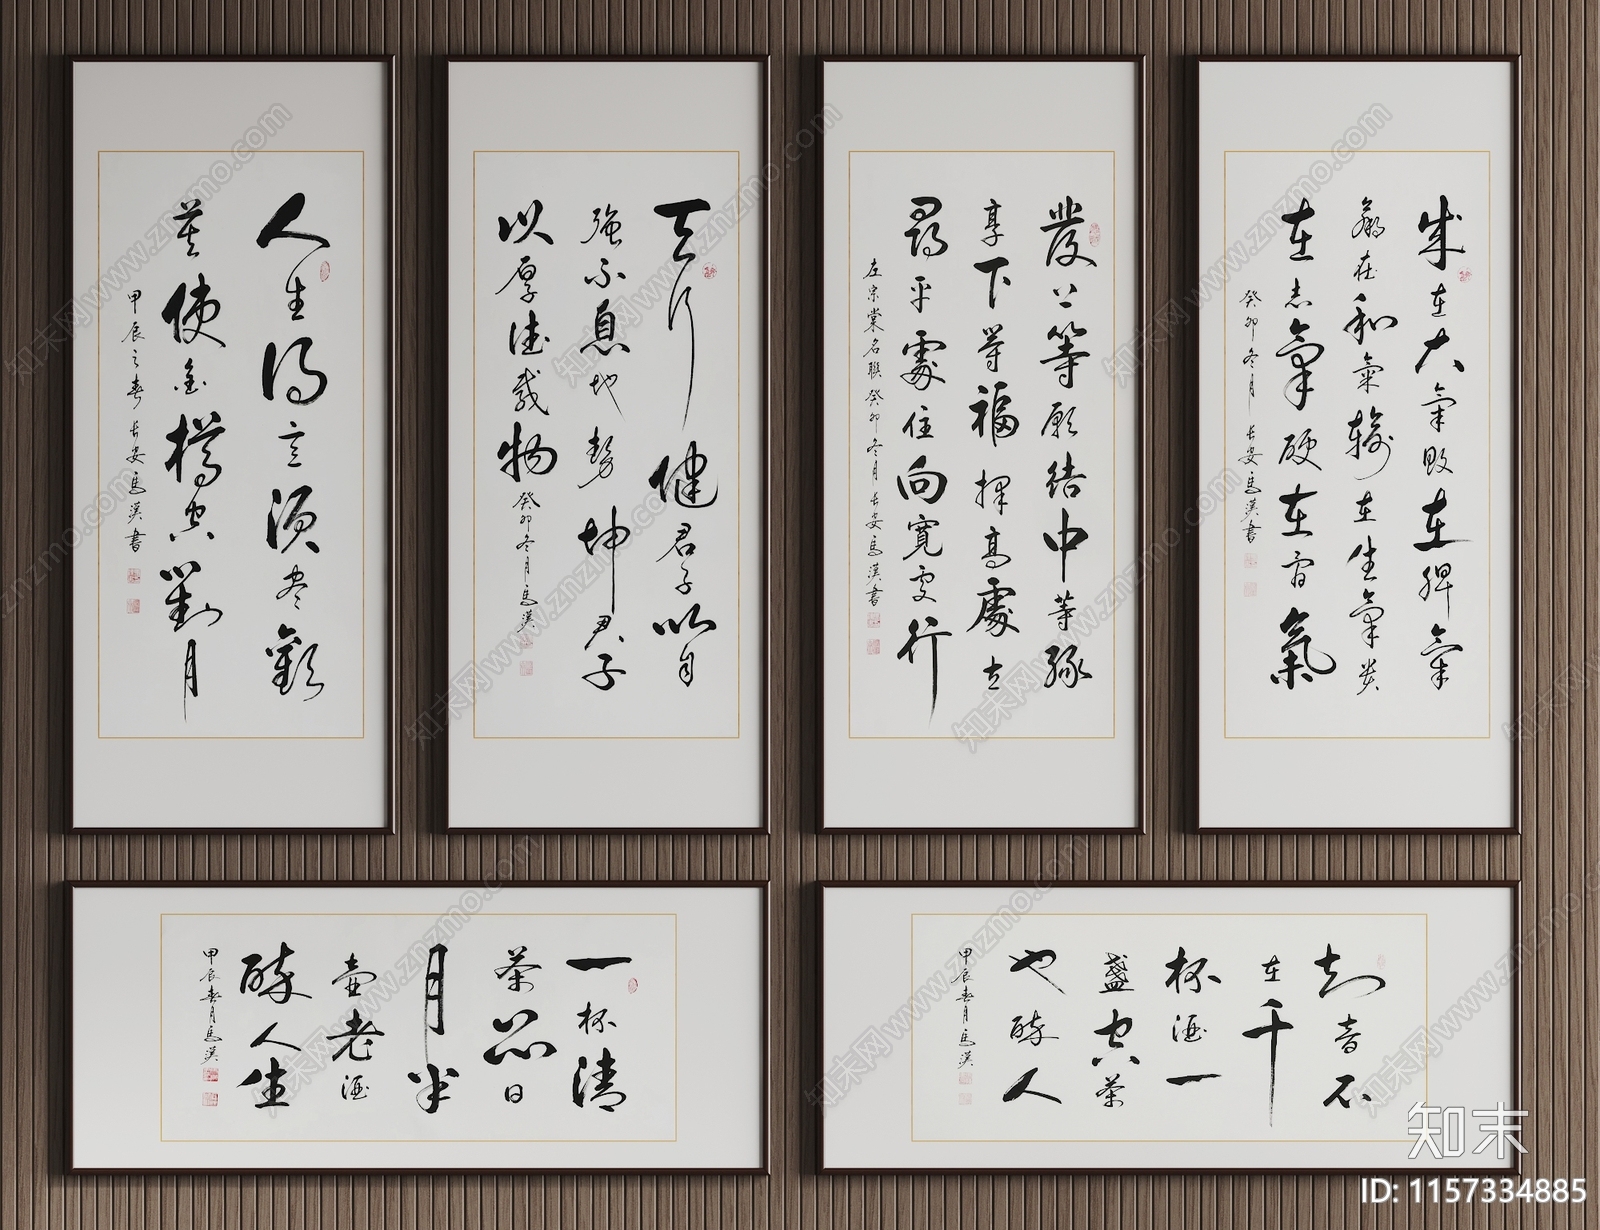 人生得意須尽歡
莫使金樽空對月
甲辰之春 长安馬漢書
天行健君子以自
強不息地勢坤君子
以厚德載物
癸卯冬月馬漢
發上等願結中等緣
享下等福擇高處立
尋平處住向寬處行
左宗棠名聯癸卯冬月长安馬漢書
成在大氣敗在脾氣
贏在和氣輸在生氣貴
在志氣硬在骨氣
癸卯冬月 长安馬漢書
一杯清
茶品日
月半
壺老酒
醉人生
甲辰春月馬漢
知音不
在千
杯酒一
盞空茶
也醉人
甲辰春月馬漢
知末网www.znzmo.com
知末
ID: 1157334885